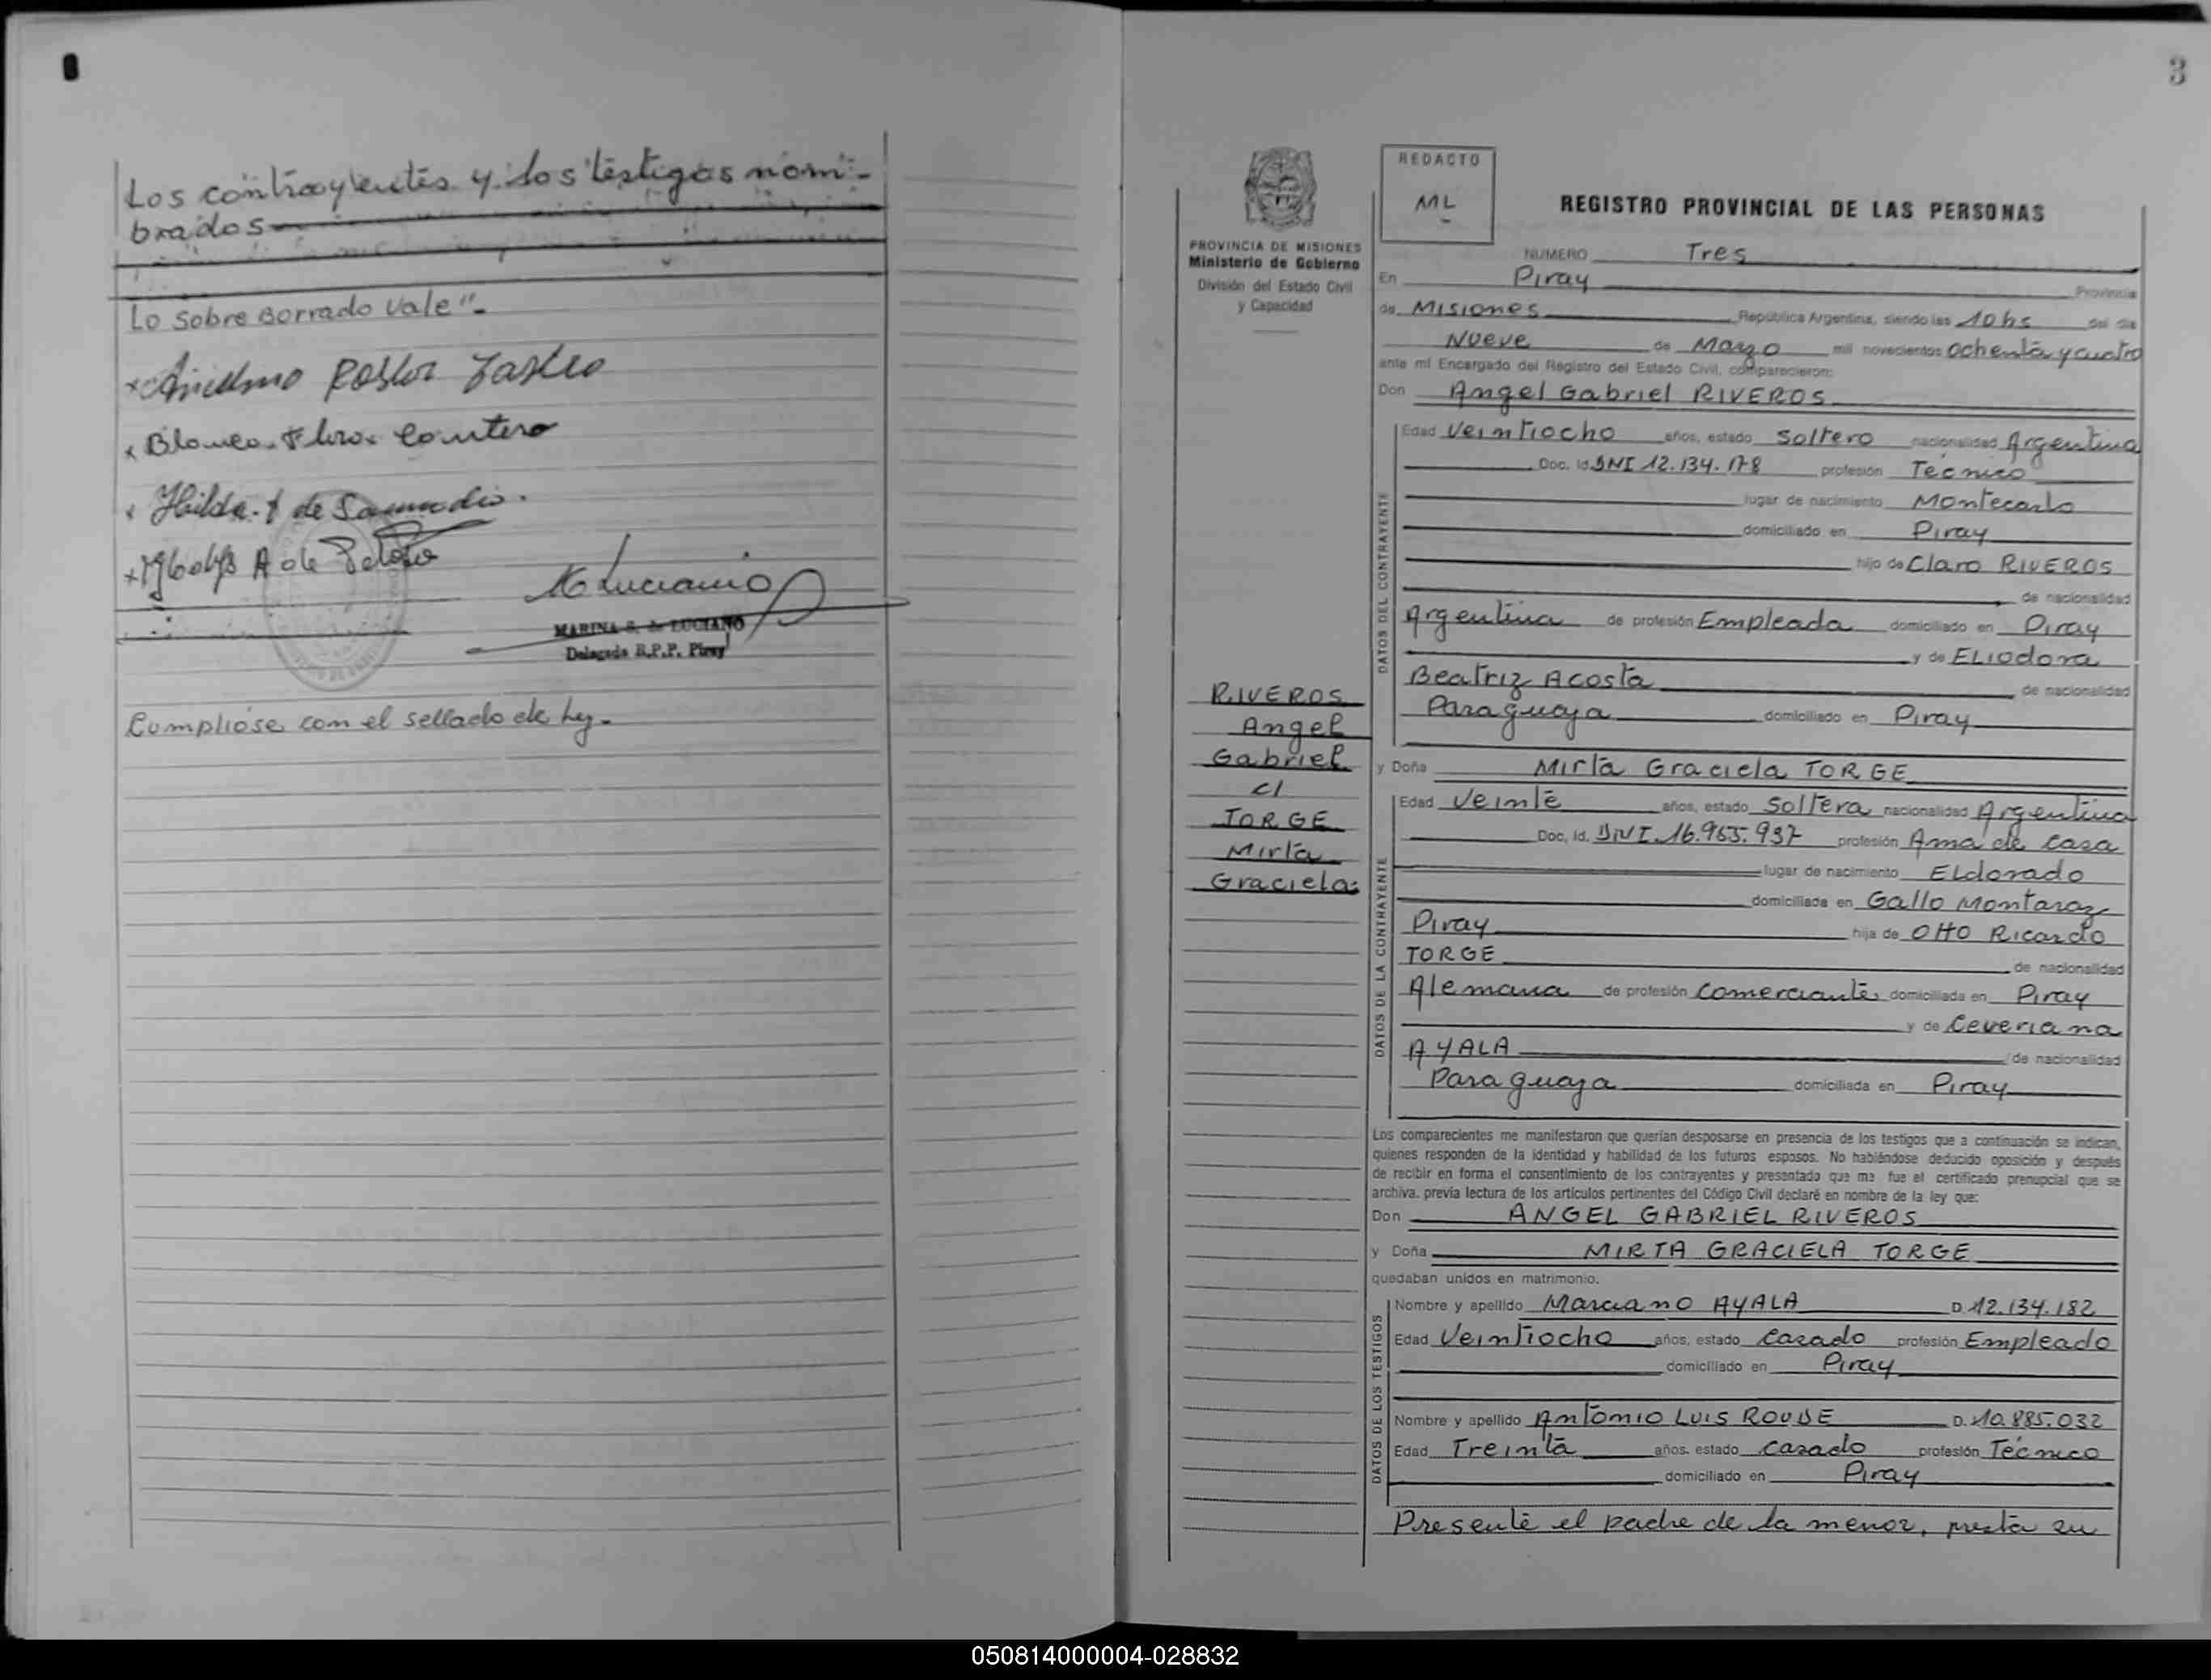 Los contrayentes y los testigos nom-
brados
Lo sobre borrado vale"-
x Anselmo Pastor
x Blanca Flora
x Hilda. A de Samudio.
x A de
MARINA S. de LUCIANO
Delegada R.P.P. Piray
Cumpliose con el sellado de ley.-
3
REDACTO
ML
PROVINCIA DE MISIONES
Ministerio de Gobierno
División del Estado Civil
y Capacidad
REGISTRO PROVINCIAL DE LAS PERSONAS
NUMERO Tres
En Piray Provincia
de Misiones República Argentina, siendo las 10hs del día
Nueve de Marzo mil novecientos ochenta y cuatro
ante mí Encargado del Registro del Estado Civil, comparecieron:
Don Angel Gabriel RIVEROS
DATOS DEL CONTRAYENTE
Edad Veintiocho años, estado Soltero nacionalidad Argentina
Doc. Id. DNI 12.134.178 profesión Técnico
lugar de nacimiento Montecarlo
domiciliado en Piray
hijo de Claro RIVEROS
de nacionalidad
Argentina de profesión Empleada domiciliado en Piray
y de ELiodora
Beatriz Acosta de nacionalidad
Paraguaya domiciliado en Piray
RIVEROS
Angel
Gabriel
c/
TORGE
Mirta
Graciela
y Doña Mirta Graciela TORGE
DATOS DE LA CONTRAYENTE
Edad Veinte años, estado Soltera nacionalidad Argentina
Doc, Id. DNI.16.965.937 profesión Ama de casa
lugar de nacimiento ELdorado
domiciliada en Gallo Montaraz
Piray hija de Otto Ricardo
TORGE de nacionalidad
Alemana de profesión Comerciante domiciliada en Piray
y de Ceveriana
AYALA de nacionalidad
Paraguaya domiciliada en Piray
Los comparecientes me manifestaron que querían desposarse en presencia de los testigos que a continuación se indican,
quienes responden de la identidad y habilidad de los futuros esposos. No habiéndose deducido oposición y después
de recibir en forma el consentimiento de los contrayentes y presentado que me fue el certificado prenupcial que se
archiva. previa lectura de los artículos pertinentes del Código Civil declaré en nombre de la ley que:
Don ANGEL GABRIEL RIVEROS
y Doña MIRTA GRACIELA TORGE
quedaban unidos en matrimonio.
DATOS DE LOS TESTIGOS
Nombre y apellido Marciano AYALA D.12.134.182
Edad Veintiocho años, estado Casado profesión Empleado
domiciliado en Piray
Nombre y apellido Antonio LUIS ROUDE D.10.885.032
Edad Treinta años. estado casado profesión Técnico
domiciliado en Piray
Presente el padre de la menor, presta su
050814000004-028832